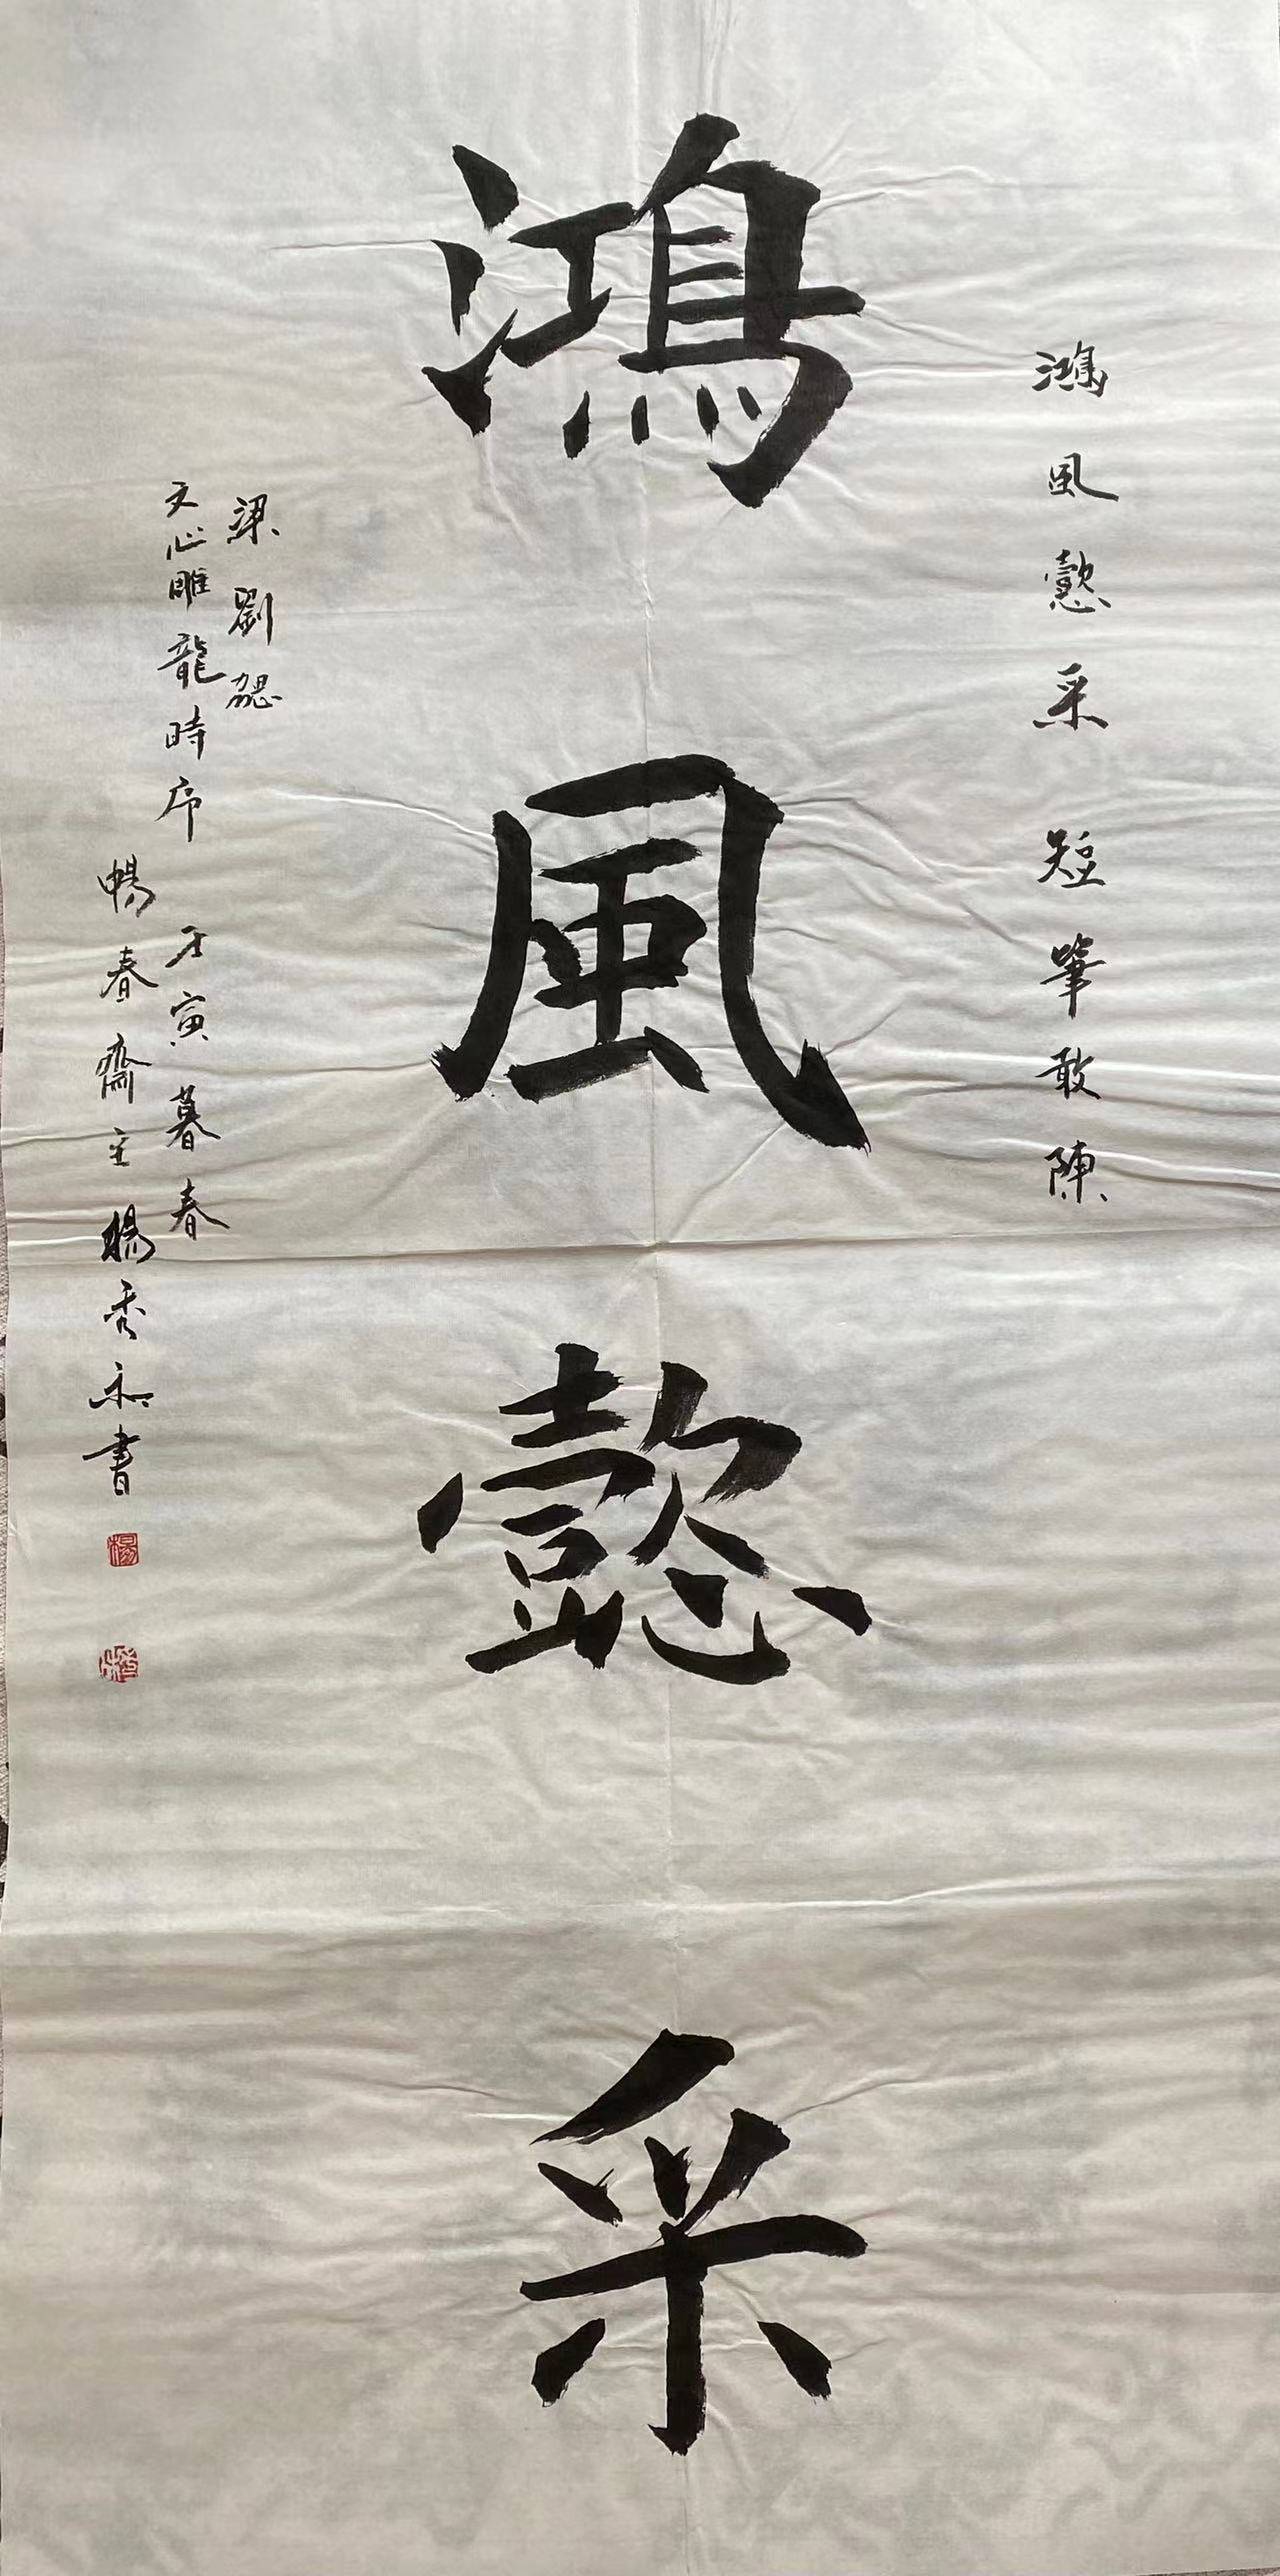 鴻風懿采短筆敢陳
鴻風懿采
梁劉勰
文心雕龍時序
壬寅暮春
暢春齋主楊秀和書
楊